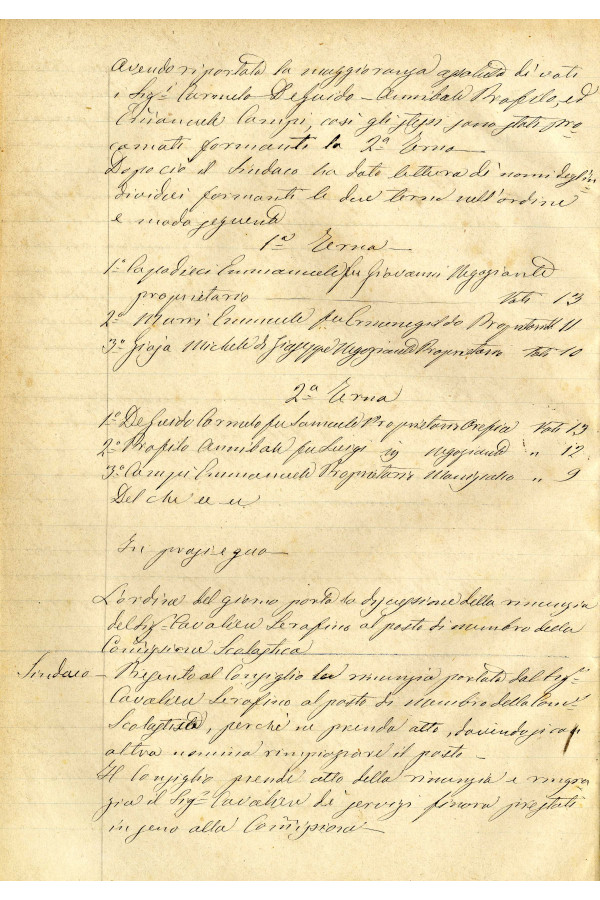 Avendo riportata la maggioranza assoluta di voti
i Sigri Carmelo De Guido – Annibale Profilo, ed
Emanuele Campi, così gli stessi sono stati pro
clamati formanti la 2a Terna
Dopo ciò il Sindaco ha dato lettura di nomi degl'in
dividui formanti le due terne nell'ordine
e modo seguente
1a Terna –
1o Capodieci Emmanuele fu Giovanni Negoziante
proprietario Voti 13
2o Marri Emanuele fu Ermenegildo Proprietario 11
3o Gioja Michele di Giuseppe Negoziante Proprietario Voti 10
2a Terna
1o De Guido Carmelo fu Samuele Proprietario Orefice Voti 13
2o Profilo Annibale fu Luigi Negoziante " 12
3o Campi Emmanuele Proprietario " 9
Del che
In prosieguo –
L'ordine del giorno porta la discussione della rinunzia
del Sigr Cavaliere Serafino al posto di membro della
Comissione Scolastica
Sindaco – Presento al Consiglio la rinunzia portata dal Sigr
Cavaliere Serafino al posto di membro della Come
Scolastica, perchè ne prenda atto, dovendosi con
altra nomina rimpiazzare il posto –
Il Consiglio prende atto della rinunzia e ringra
zia il Sigr Cavaliere di servizi finora prestati
in seno alla Comissione –